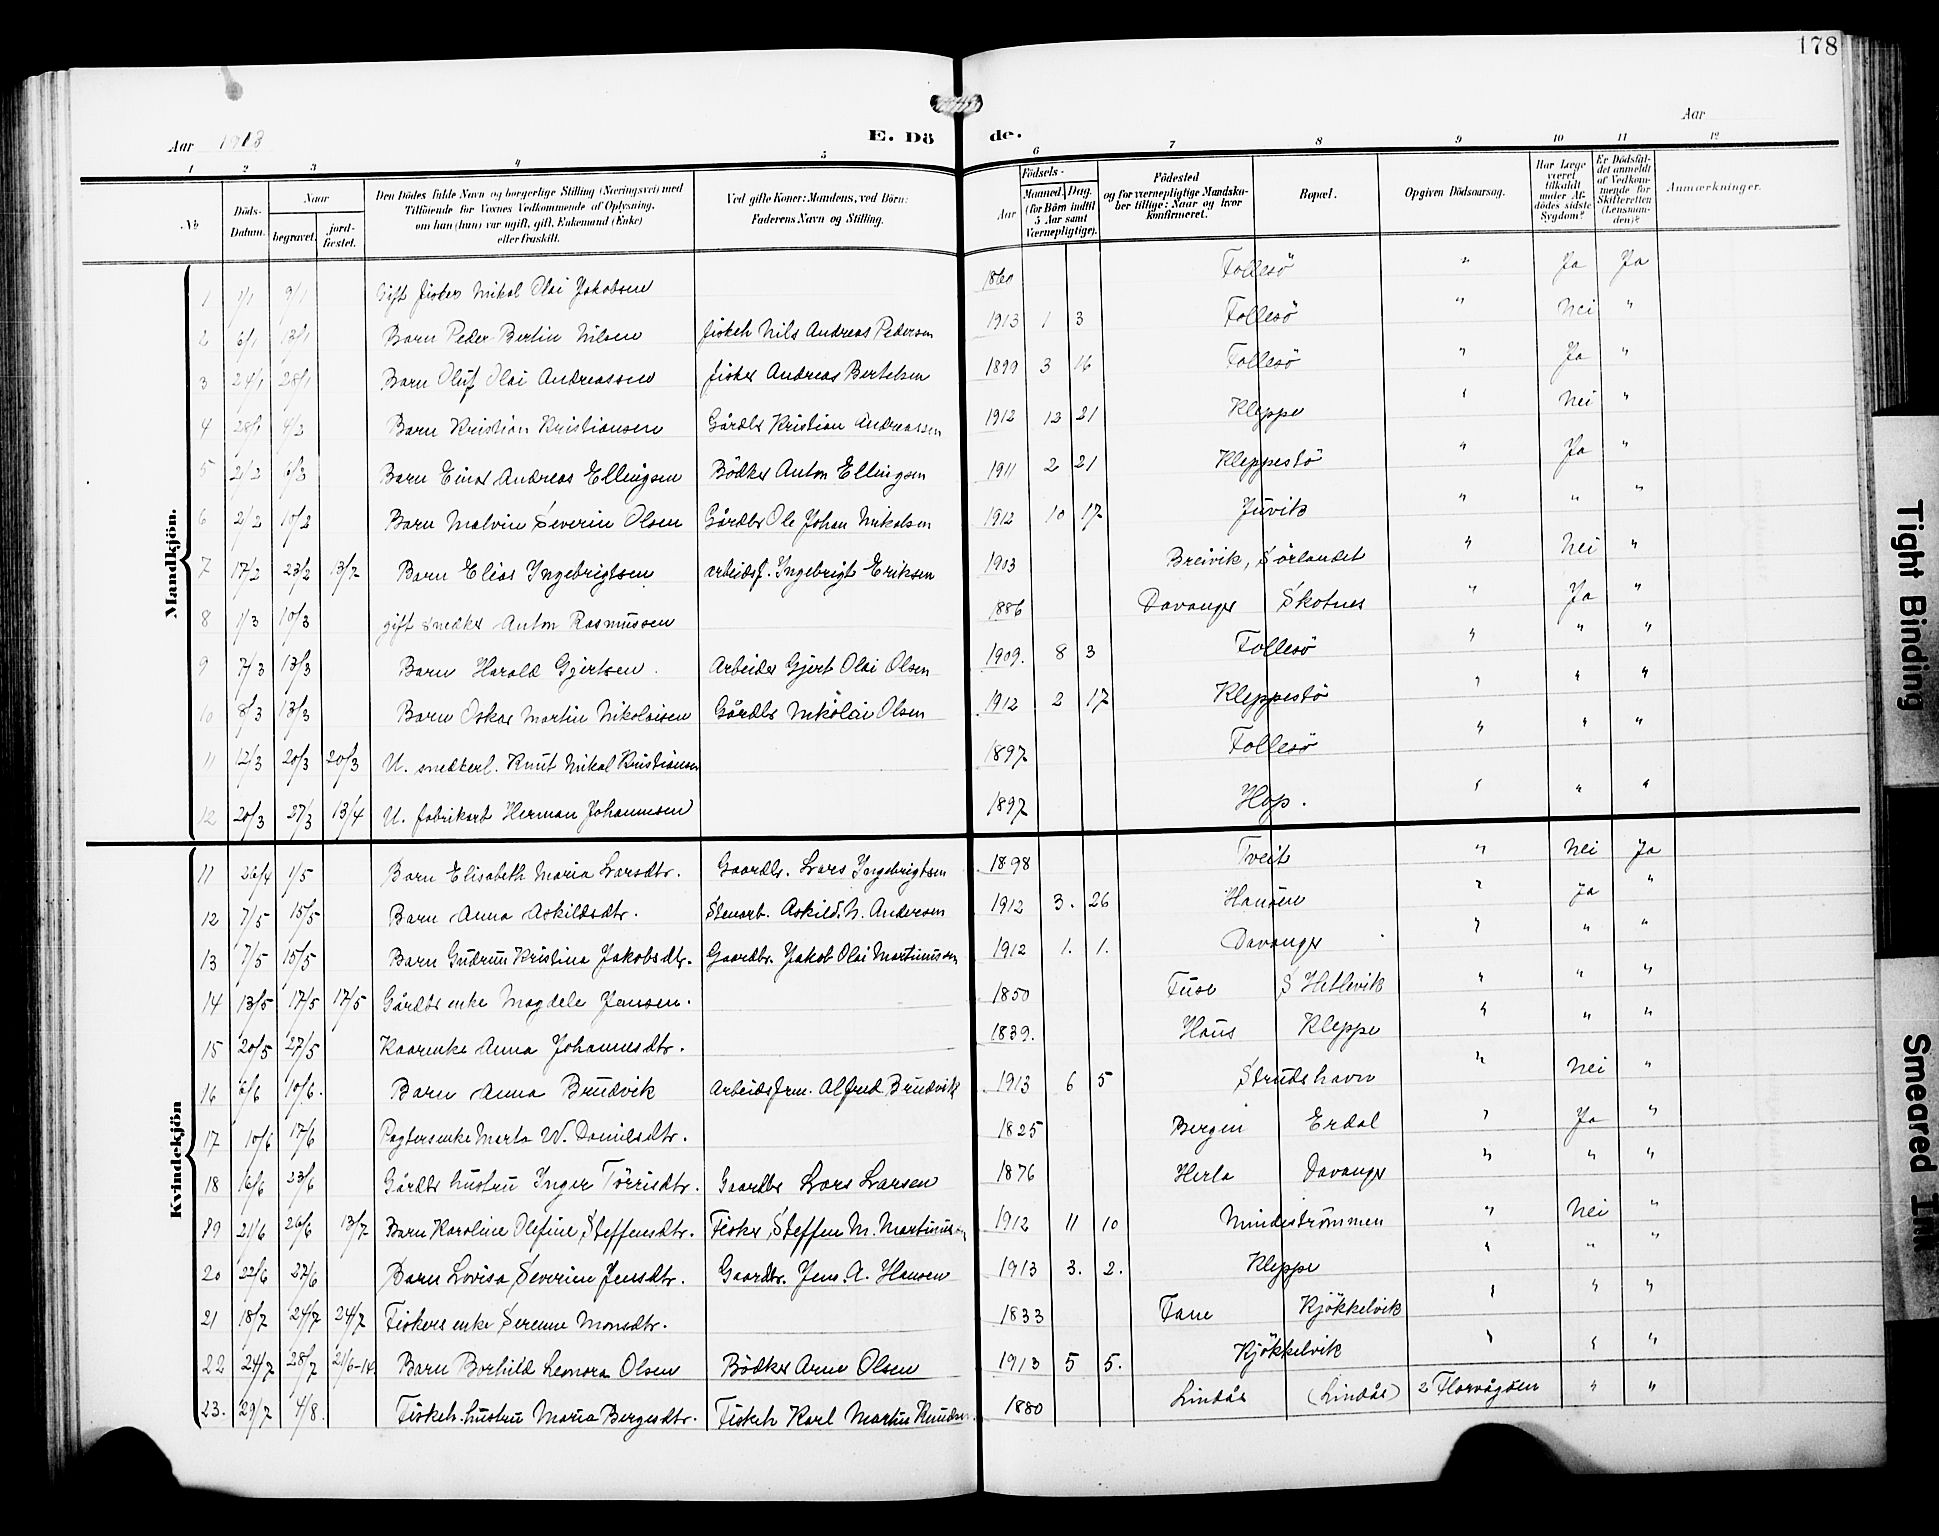 178
Aar 1913 E. Dö de. Aar
1 2 3 4 5 6 7 8 9 10 11 12
No Döds-Datum. Naar begravet. jordfæstet. Den Dödes fulde Navn og borgerlige Stilling (Næringsvei) med Tilföiende for Voxnes Vedkommende af Oplysning, om han (hun) var ugift, gift, Enkemand (Enke) eller fraskilt. Ved gifte Koner: Mandens, ved Börn: Faderens Navn og Stilling. Födsels- Aar Maaned. Dag. (for Börn indtil 5 Aar samt Værnepligtige). Födested og for værnepligtige Mandskaber tillige: Naar og hvor konfirmeret. Bopæl. Opgiven Dödsaarsag. Har Læge været tilkaldt under Afdödes sidste Sygdom? Er Dödsfaldet anmeldt af Vedkommende for Skifteretten (Lensmanden)? Anmærkninger.
Mandkjön.
1 1/1 9/1 Gift fisker Nikol Olai Jakobsen 1860 Follesö " Ja Ja
2 6/1 13/1 Barn Peder Bertin Nilsen fiskeh Nils Andreas Pedersen 1913 1 3 Follesö " Nei "
3 24/1 28/1 Barn Oluf Olai Andreassen fisker Andreas Bertelsen 1899 3 16 Follesö " Ja "
4 28/1 4/2 Barn Kristian Kristiansen Gårdbr Kristian Andreassen 1912 12 21 Kleppe " Nei "
5 2/2 6/2 Barn Einar Andreas Ellingsen Bödker Anton Ellingsen 1911 2 21 Kleppestö " Ja "
6 2/2 10/2 Barn Malvin Severin Olsen Gårdbr Ole Johan Nikolsen 1912 10 17 Juvik " " "
7 17/2 23/2 13/7 Barn Elias Ingebrigtsen arbeidsf. Ingebrigt Eriksen 1903 Breivik, Sörlandet " Nei "
8 1/3 10/3 gift snedker Anton Rasmussen 1886 Davanger Skotnes " Ja "
9 7/3 13/3 Barn Harald Gjertsen. Arbeider Gjert Olai Olsen 1909. 8 3 Follesö " " "
10 8/3 13/3 Barn Oskar Martin Nikolaisen Gårdbr Nikolai Olsen 1912 2 17 Kleppestö " " "
11 12/3 20/3 20/3 U. snedkerl. Knut Nikol Kristiansen 1897 Follesö " " "
12 20/3 27/3 13/4 U. fabrikarb Herman Johannesen 1897 Hop. " " "
Kvindekjön
11 26/4 1/5 Barn Elisabeth Maria Larsdtr. Gaardbr. Lars Ingebrigtsen 1898 Tveit " Nei Ja
12 7/5 15/5 Barn Anna Askildsdtr. Stenarb. Askild N. Andersen 1912 3. 26 Hanöen " Ja "
13 7/5 15/5 Barn Gudrun Kristina Jakobsdtr. Gaardbr. Jakob Olai Martinussen 1912 1. 1. Davanger " " "
14 13/5 17/5 17/5 Gårdbr enke Magdele Jensen. 1850 Fuse S Hetlevik " " "
15 20/5 27/5 Kaarenke Anna Johannesdtr. 1839. Haus Kleppe " " "
16 6/6 10/6. Barn Anna Brudvik Arbeidsfrm. Alfred Brudvik 1913 6 5 Strudshavn " Nei "
17 10/6 17/6 Pagtersenke Marta W. Danielsdtr. 1825 Bergen Erdal " Ja "
18 16/6 23/6 Gårdbr hustru Inger Törrisdtr. Gaardbr Lars Larsen 1876 Herla Davanger " " "
19 21/6 26/6 13/7 Barn Karoline Olefine Steffensdtr. Fisker Steffen M. Martinussen 1912 11 10 Mindeströmmen " Nei "
20 22/6 27/6 Barn Lovisa Severine Jensdtr. Gaardbr. Jens A. Hansen 1913 3. 2. Kleppe " " "
21 18/7 24/7 24/7 Fiskers enke Serenne Monsdtr. 1833 Fane Kjökkelvik " " "
22 24/7 28/7 21/6-14 Barn Borhild Leonora Olsen Bödker Arne Olsen 1913 5 5. Kjökkelvik " " "
23. 29/7 4/8. Fiskeh. hustru Maria Bergesdtr. Fiskeh Karl Martin Knudsen. 1880 Lindås (Lindås) 2 Florvågöen " "
Tight Binding
Smeared Ink